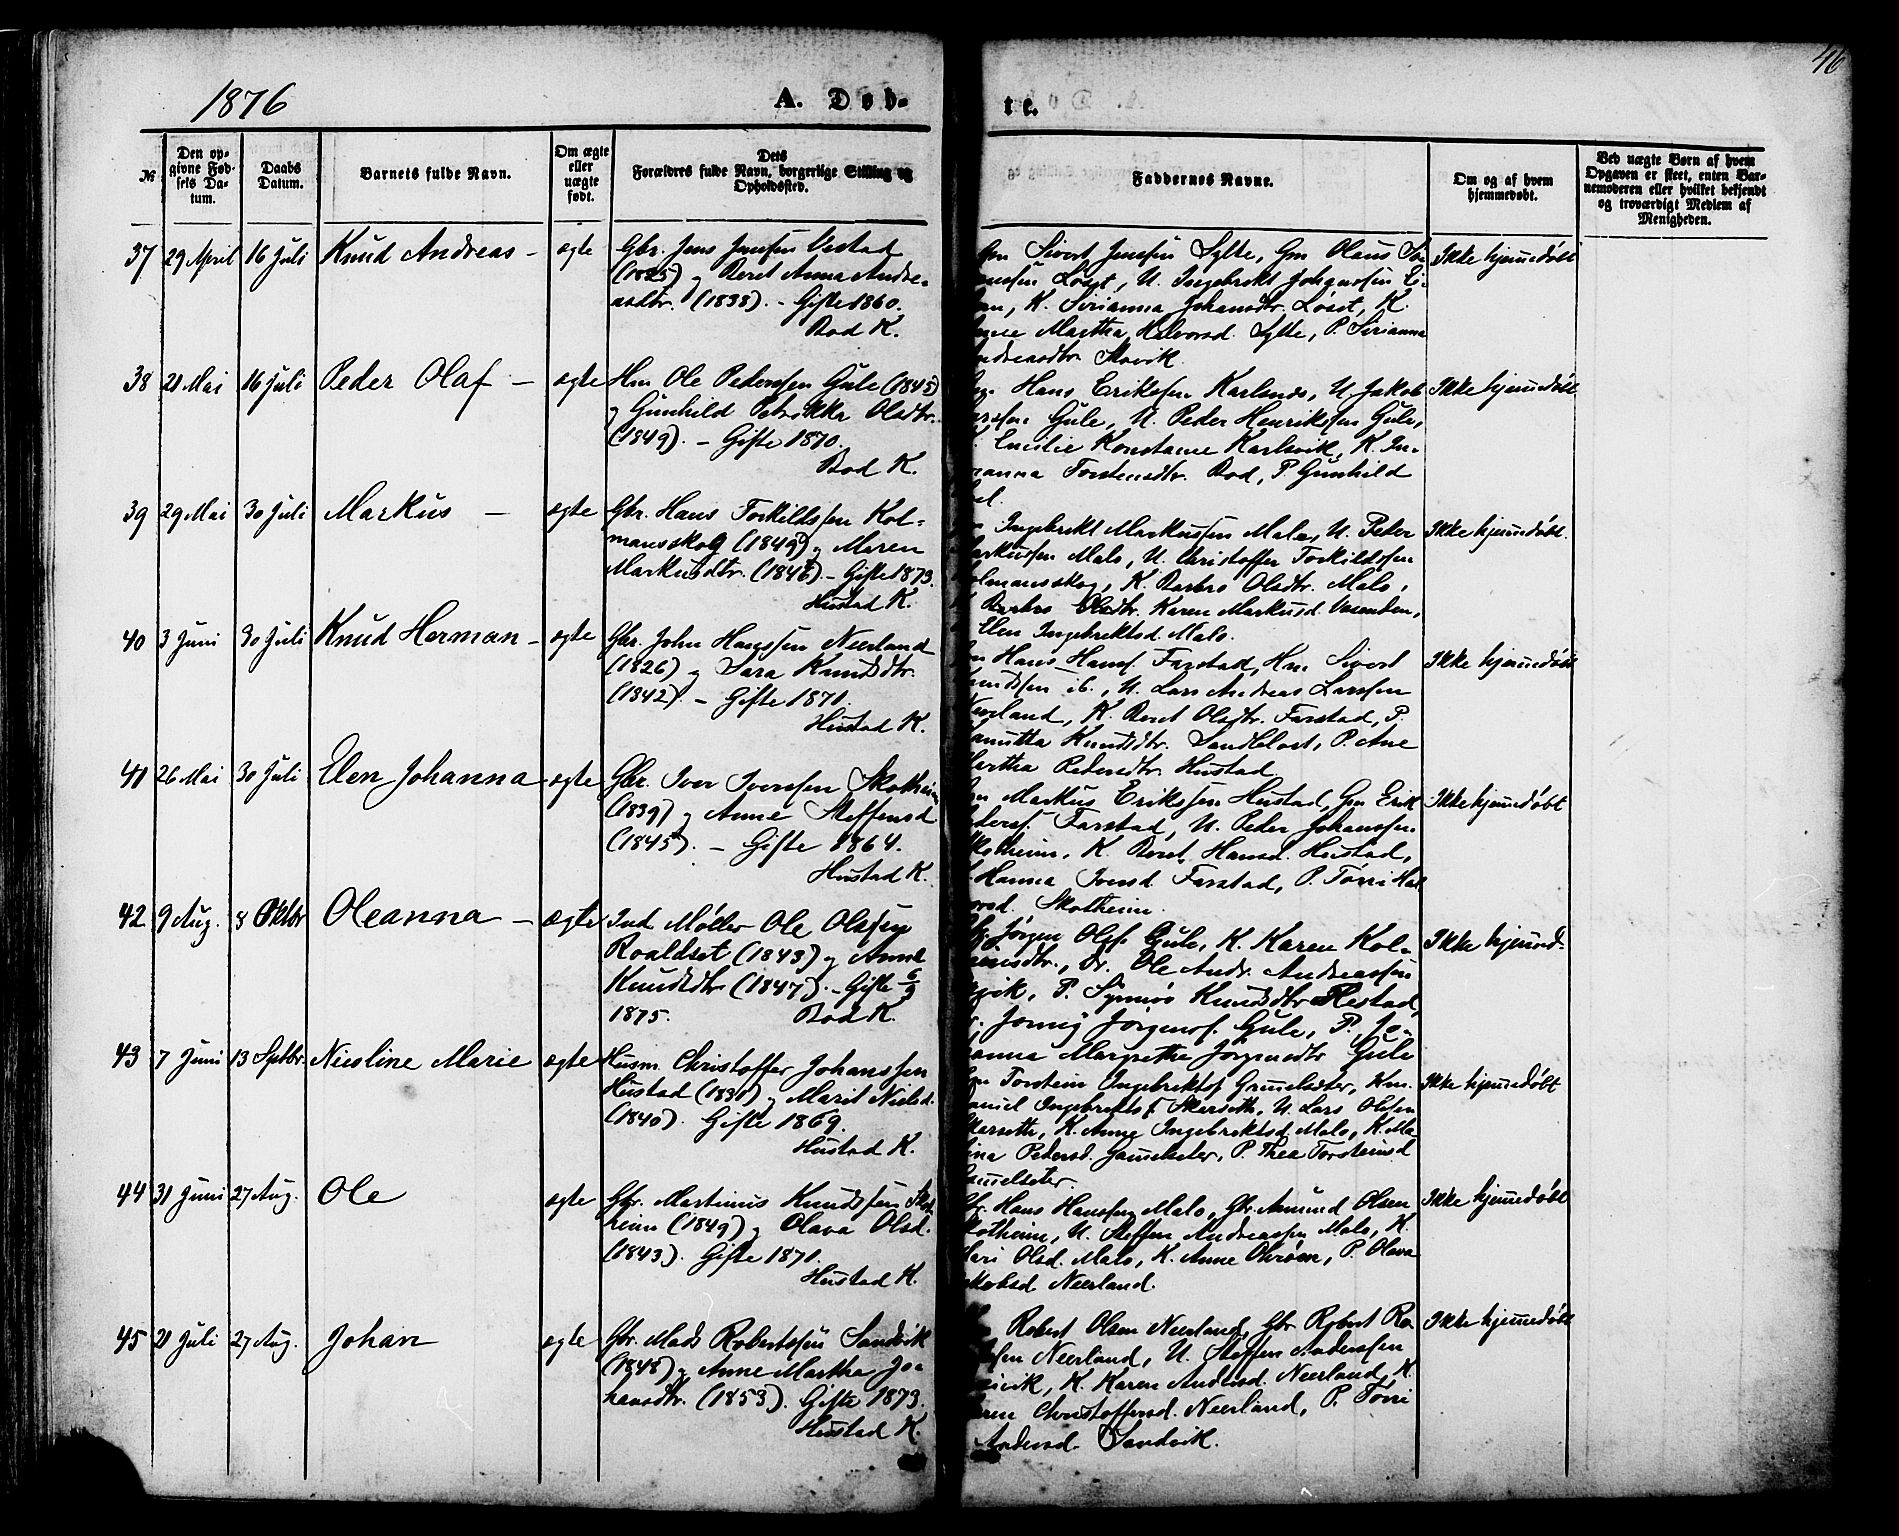 46
1876
A. Døb-
te.
№
Den op-
givne Fød-
sels Da-
tum.
Daabs
Datum.
Barnets fulde Navn.
Om ægte
eller
uægte
født.
Dets
Forældres fulde Navn, borgerlige Stilling og
Opholdssted.
Faddernes Navne.
Om og af hvem
hjemmedøbt.
Ved uægte Børn af hvem
Opgaven er skeet, enten Bar-
nemoderen eller hvilket bekjendt
og troværdigt Medlem af
Menigheden.
37 29 April 16 Juli Knud Andreas - ægte
Gbr. Jens Jensen Vestad
(1825) og Beret Anna Andre-
asdtr. (1838). - Gifte 1860.
Bod K.
Gm Sivert Jensen Sylte, Gm Olaus
Løset, U. Ingebrikt Johansen
K. Sirianna Johansdtr. Løset, K.
Martha Halvorsd. Sylte, P. Sirianna
Ikke hjemmedøbt
38 21 Mai 16 Juli Peder Olaf - ægte
Hm Ole Pedersen Gule (1845)
og Gunhild Petrikka Olsdtr.
(1849). - Gifte 1870.
Bod K.
Hans Eriksen Karlsnes, U Jakob
Gule, U. Peder Henriksen Gule,
Konstance Karlsvik, K. In-
Torstensdtr. Bod, P Gunhild
Ikke hjemmedøbt
39 29 Mai 30 Juli Markus - ægte
Gbr. Hans Torkildssen Kol-
mansskog (1849) og Maren
Markusdtr. (1846). - Gifte 1873.
Hustad K.
Ingebrikt Markussen Malo, U. Peder
Malo, U. Christoffer Torkildssen
K. Barbro Olsdtr. Malo,
Barbro Olsdtr. Karen Markusd. Vasenden,
Elen Ingebriktsd. Malo.
Ikke hjemmedøbt.
40 3 Juni 30 Juli Knud Herman - ægte
Gbr. John Hanssen Neerland
(1826) og Sara Knudsdtr.
(1842). - Gifte 1871.
Hustad K.
Hans Hansf. Farstad, Hm Sivert
ib., U. Lars Andreas Larssen
K. Beret Olsdtr. Farstad, P.
Knudsdtr. Sandblost, P. Ane
Pedersdtr. Hustad
Ikke hjemmedøbt
41 26 Mai 30 Juli Elen Johanna - ægte
Gbr. Iver Iversen Skotheim
(1839) og Anne Steffensd
(1845). - Gifte 1864.
Hustad K.
Markus Erikssen Hustad, Gm Erik
Farstad, U. Peder Johanssen
K. Beret Hansd. Hustad,
Hanna Iversd Farstad, P. Tørri
Skotheim.
Ikke hjemmedøbt
42 9 Aug. 8 Oktbr Oleanna - ægte
Ind. Møller Ole Olsen
Roaldset (1843) og Anne
Knudsdtr (1847). - Gifte 6/9
1875.
Bod K.
Jørgen Olsf. Gule, K. Karen Kol-
Dr. Ole Andr. Andreassen
P. Synnøv Knudsdtr Hestad,
Jørgensf. Gule, P. Jo-
Margrethe Jørgensdtr Gule
Ikke hjemmd.
43 7 Juni 13 Septbr. Niesline Marie ægte
Husm. Christoffer Johanssen
Hustad (1831) og Marit Nielsd.
(1840). Gifte 1869.
Hustad K.
Torstein Ingebriktsf.
Ingebriktsf. Skarseth, U. Lars Olsen
Skarseth, K. Anne Ingebriktsd. Malo, K. Ma-
Pedersd. P. Thea Torsteinsd
Ikke hjemmedøbt
44 31 Juni 27 Aug. Ole ægte
Gbr. Martinus Knudssen Skot-
heim (1849) og Olava Olsd.
(1843). Gifte 1871.
Hustad K.
Hans Hanssen Malo, Gbr. Amund Olsen
Skotheim, U. Steffen Andreassen Malo, K.
Olsd. Malo, K. Anne P. Olava
Neerland.
Ikke hjemmedøbt
45 21 Juli 27 Aug. Johan ægte
Gbr. Mads Robertssen Sandvik
(1848) og Anne Martha Jo-
hansdtr. (1853). Gifte 1873.
Hustad K.
Robert Olsen Neerland, Gbr Robert Ro-
Neerland, U. Steffen Anderssen
K. Karen Andersd. Neerland, K.
Christoffersd. Neerland, P. Tørri
Andersd. Sandvik.
Ikke hjemmedøbt